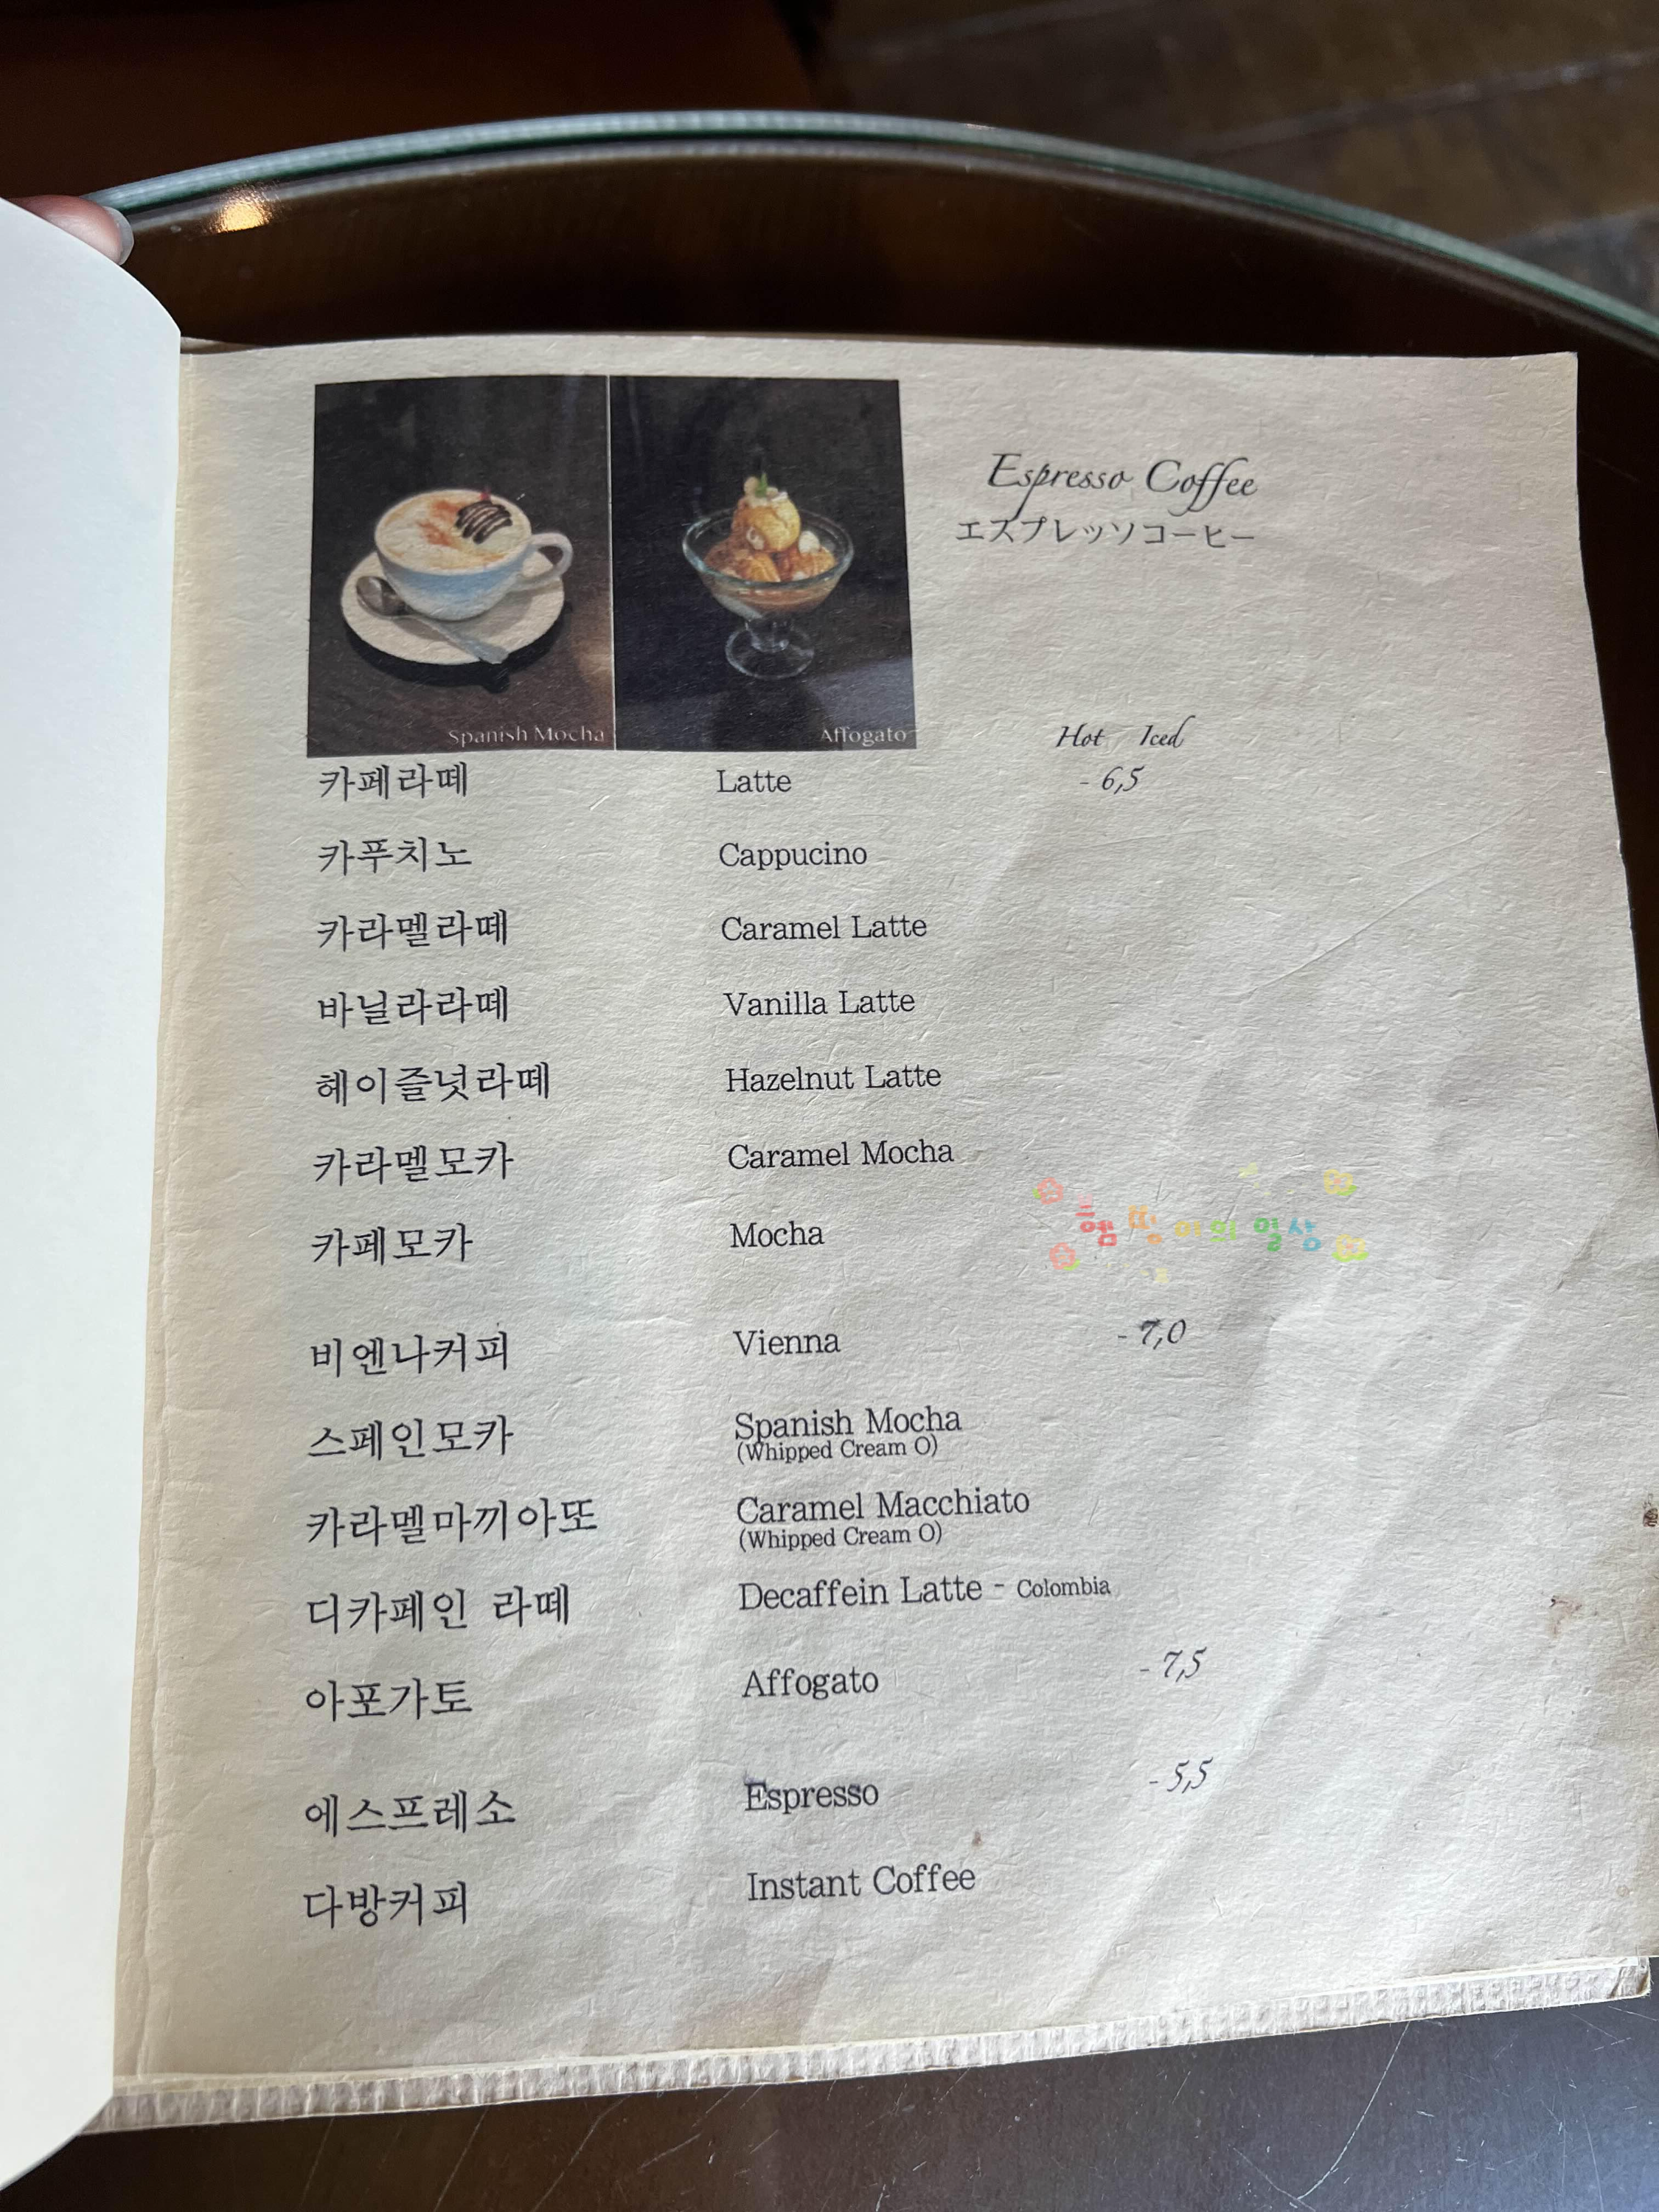 Espresso Coffee
エスプレッソコーヒー
Spanish Mocha
Affogato
Hot Iced
카페라떼 Latte - 6,5
카푸치노 Cappucino
카라멜라떼 Caramel Latte
바닐라라떼 Vanilla Latte
헤이즐넛라떼 Hazelnut Latte
카라멜모카 Caramel Mocha
카페모카 Mocha
의 일상
비엔나커피 Vienna - 7,0
스페인모카 Spanish Mocha
(Whipped Cream O)
카라멜마끼아또 Caramel Macchiato
(Whipped Cream O)
디카페인 라떼 Decaffein Latte - Colombia
아포가토 Affogato - 7,5
에스프레소 Espresso - 5,5
다방커피 Instant Coffee